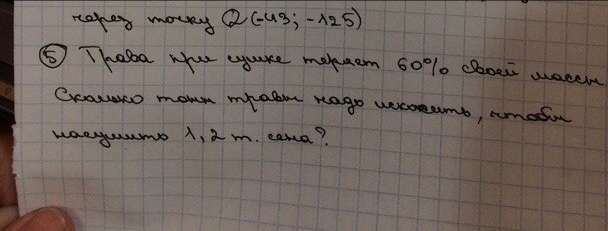 через точку Q (-43; -125)
⑤ Трава при сушке теряет 60% своей массы
Сколько тонн травы надо искосить, чтобы
насушить 1,2 т. сена?